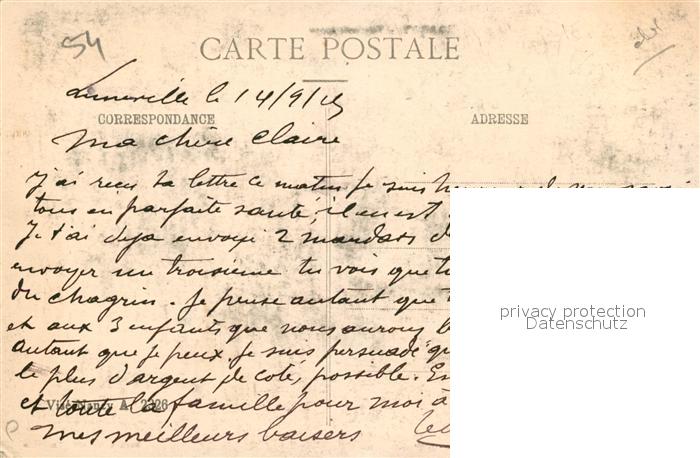 54
CARTE POSTALE
Luneville le 14/9/15
CORRESPONDANCE ADRESSE
Ma chère Claire
J'ai reçu ta lettre ce matin je suis
tous en parfaite santé, il en est
Je t'ai deja envoyé 2 mandats
envoyer un troisieme tu vois que
du chagrin. Je pense autant que
et aux 3 enfants que nous aurons
autant que je peux. Je suis persuadé
le plus d'argent de coté, possible.
Nancy A 2226
et toute la famille pour moi à
mes meilleurs baisers
privacy protection
Datenschutz